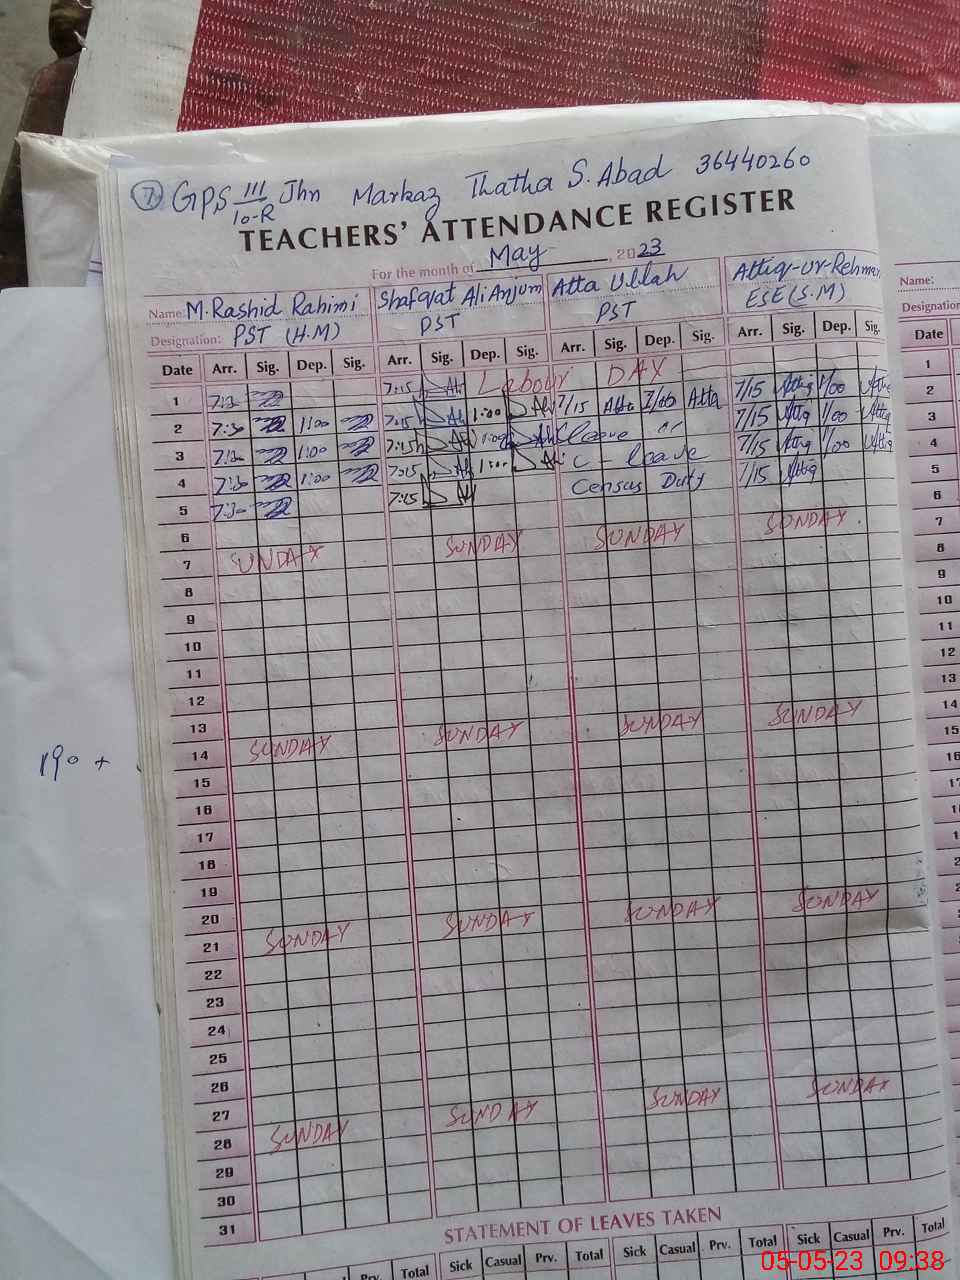 7 GPS 111/10-R Jhn Markaz Thatha S. Abad 36440260
TEACHERS' ATTENDANCE REGISTER
For the month of May, 2023
Name: M. Rashid Rahimi Shafqat Ali Anjum Atta Ullah Attiq-ur-Rehman Name:
Designation: PST (H.M) PST PST ESE (S.M) Designation
Date Arr. Sig. Dep. Sig. Arr. Sig. Dep. Sig. Arr. Sig. Dep. Sig. Arr. Sig. Dep. Sig. Date
1 7:30 7:15 Labour DAY 1
2 7:30 1:00 7:15 1:00 7/15 Atta 1/00 Atta 7/15 Attiq 1/00 Attiq 2
3 7:30 1:00 7:15 1:00 C leave 7/15 Attiq 1/00 Attiq 3
4 7:30 1:00 7:15 1:00 C - leave 7/15 Attiq 1/00 Attiq 4
5 7:30 7:15 Census Duty 7/15 Attiq 5
6 6
7 SUNDAY SUNDAY SUNDAY SUNDAY 7
8 8
9 9
10 10
11 11
12 12
13 13
14 SUNDAY SUNDAY SUNDAY SUNDAY 14
15 15
16 16
17
18
19
20
21 SUNDAY SUNDAY SUNDAY SUNDAY
22
23
24
25
26
27
28 SUNDAY SUNDAY SUNDAY SUNDAY
29
30
31
190 +
STATEMENT OF LEAVES TAKEN
Prv. Total Sick Casual Prv. Total Sick Casual Prv. Total Sick Casual Prv. Total
05-05-23 09:38